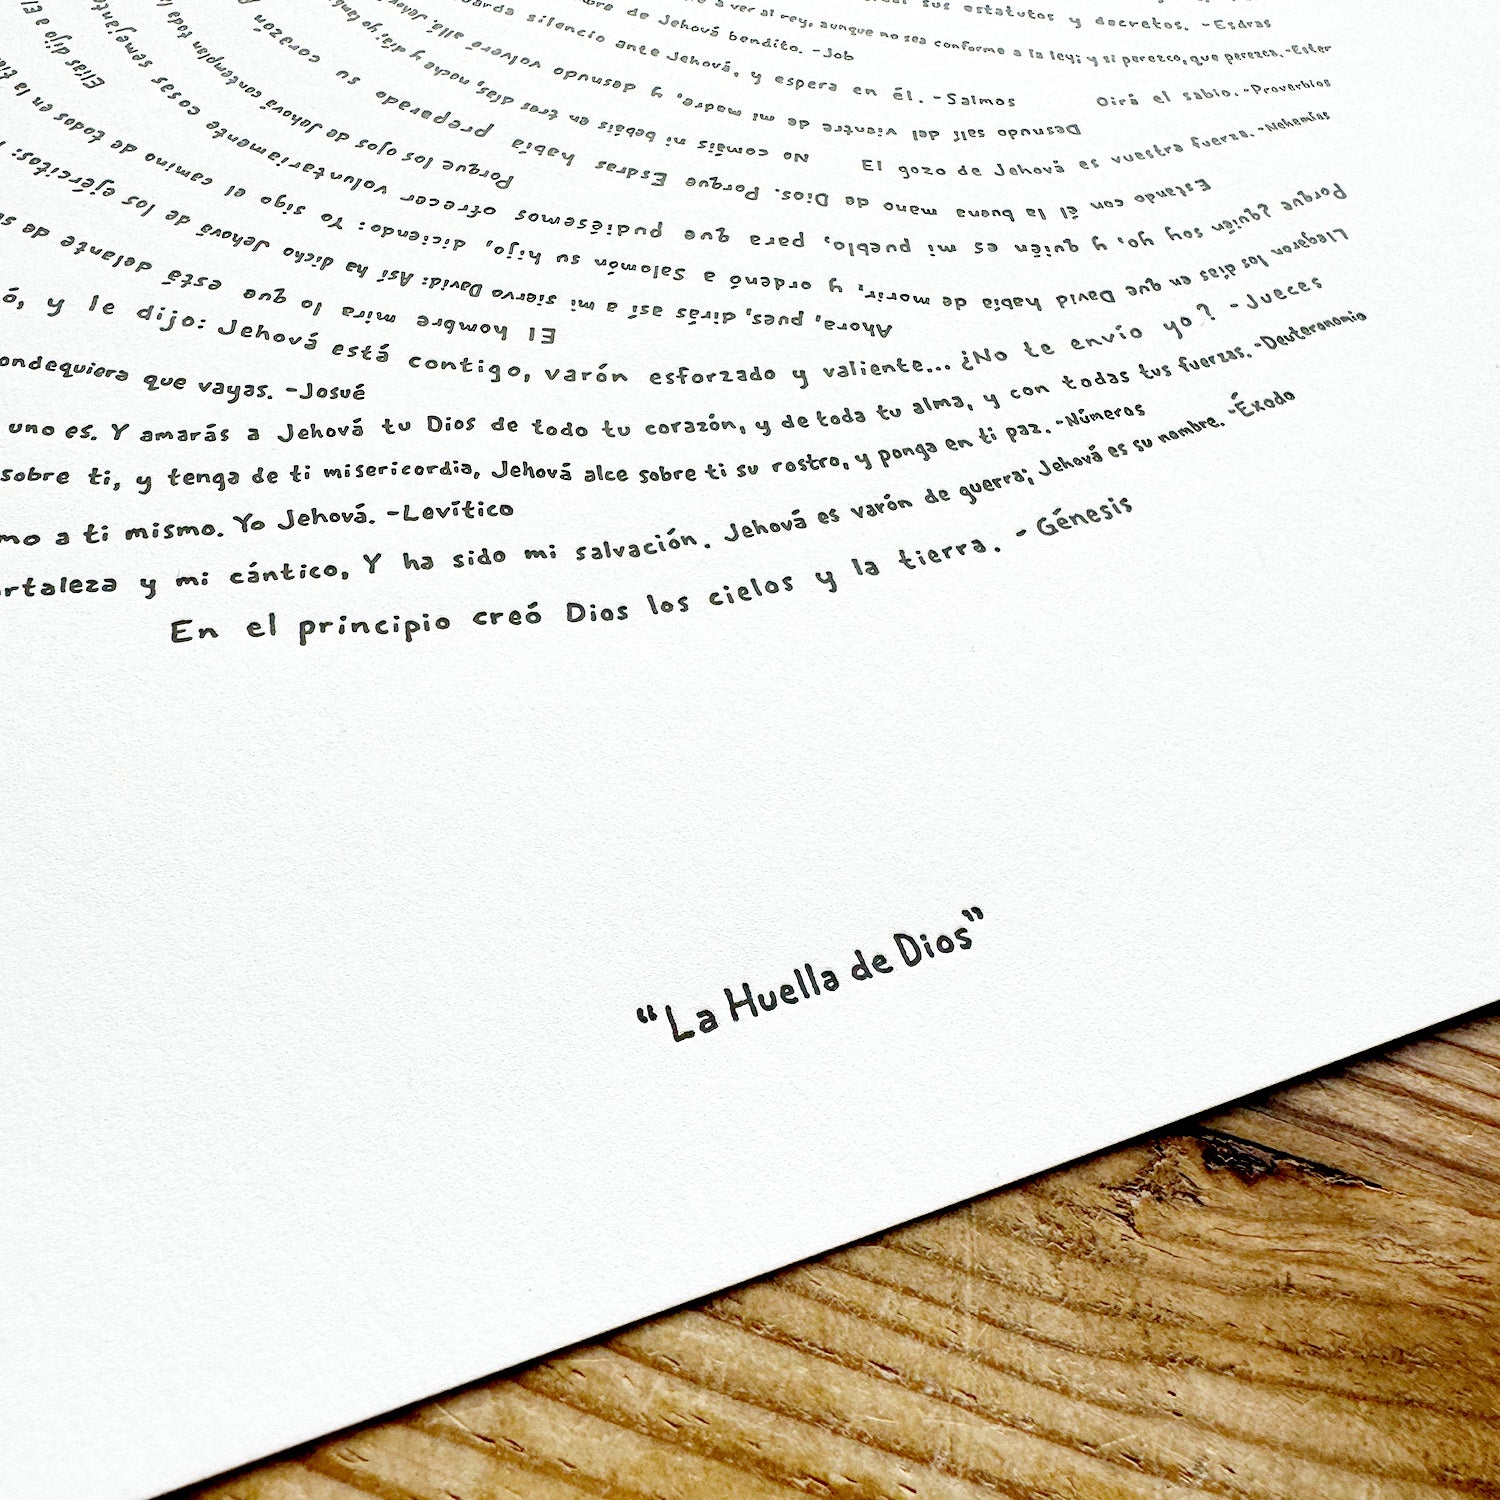 sus estatutos y decretos. -Esdras
a ver al rey, aunque no sea conforme a la ley; y si perezco, que perezca. -Ester
de Jehová bendito. -Job
silencio ante Jehová, y espera en él. -Salmos
Oirá el sabio. -Proverbios
Desnudo salí del vientre de mi madre, y desnudo volveré allá.
No comáis ni bebáis en tres días, noche y día; yo
El gozo de Jehová es vuestra fuerza. -Nehemías
Estando con él la buena mano de Dios. Porque Esdras había preparado su corazón
Porque los ojos de Jehová contemplan toda
Porque ¿quién soy yo, y quién es mi pueblo, para que pudiésemos ofrecer voluntariamente cosas semejantes
Llegaron los días en que David había de morir, y ordenó a Salomón su hijo, diciendo: Yo sigo el camino de todos en la
Elías dijo a El
Ahora, pues, dirás así a mi siervo David: Así ha dicho Jehová de los ejércitos:
El hombre mira lo que está delante de
ó, y le dijo: Jehová está contigo, varón esforzado y valiente... ¿No te envío yo? -Jueces
ondequiera que vayas. -Josué
uno es. Y amarás a Jehová tu Dios de todo tu corazón, y de toda tu alma, y con todas tus fuerzas. -Deuteronomio
sobre ti, y tenga de ti misericordia, Jehová alce sobre ti su rostro, y ponga en ti paz. -Números
mo a ti mismo. Yo Jehová. -Levítico
rtaleza y mi cántico, Y ha sido mi salvación. Jehová es varón de guerra; Jehová es su nombre. -Éxodo
En el principio creó Dios los cielos y la tierra. - Génesis
“La Huella de Dios”